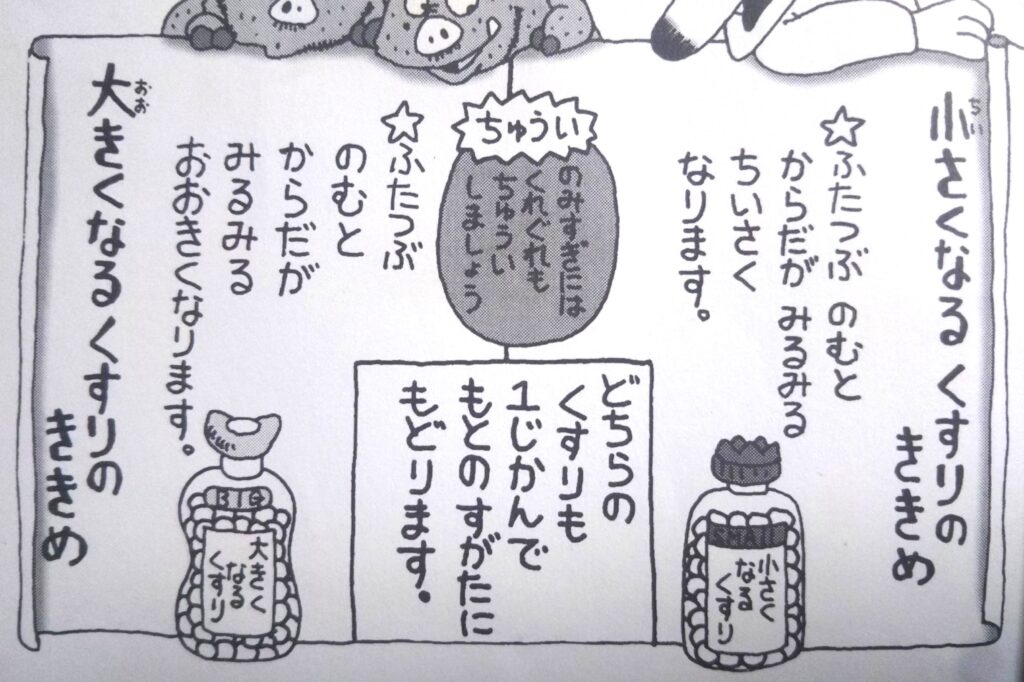 小さくなる くすりの
ききめ
☆ふたつぶ のむと
からだが みるみる
ちいさく
なります。
ちゅうい
のみすぎには
くれぐれも
ちゅうい
しましょう
どちらの
くすりも
1じかんで
もとのすがたに
もどります。
☆ふたつぶ
のむと
からだが
みるみる
おおきくなります。
大きくなるくすりの
ききめ
SMALL
小さく
なる
くすり
BIG
大きく
なる
くすり